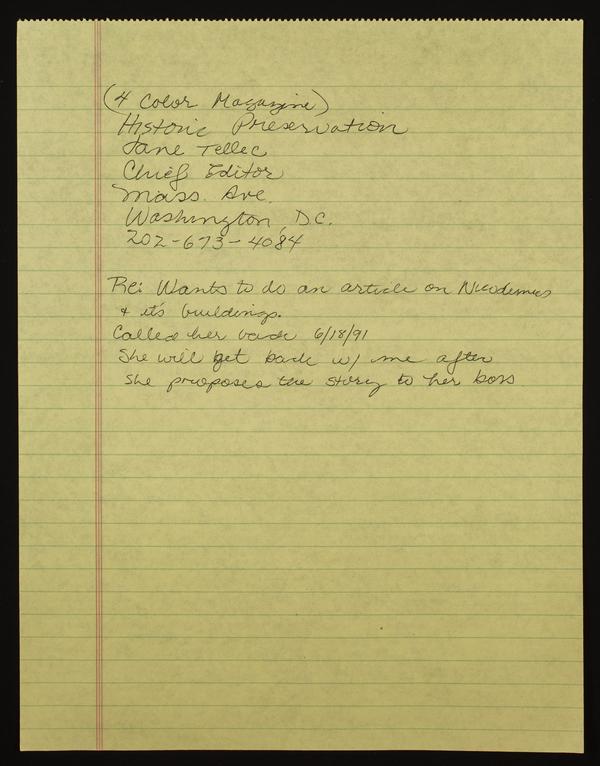 (4 Color Magazine)
Historic Preservation
Jane Tellec
Chief Editor
Mass. Ave.
Washington, D.C.
202-673-4084
Re: Wants to do an article on Nicodemus
& it's buildings.
Called her back 6/18/91
She will get back w/ me after
she proposes the story to her boss